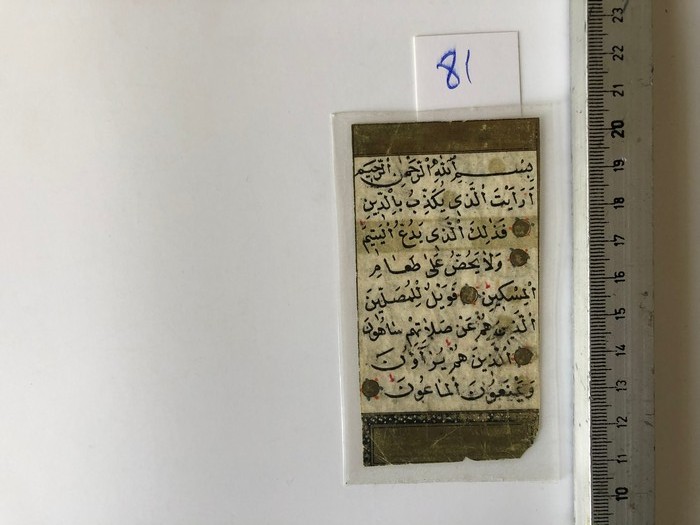 81
بِسْمِ اللهِ الرَّحْمٰنِ الرَّحِيمِ
اَرَاَيْتَ الَّذِى يُكَذِّبُ بِالدِّينِ
فَذٰلِكَ الَّذِى يَدُعُّ الْيَتِيمَ
وَلَا يَحُضُّ عَلٰى طَعَامِ
الْمِسْكِينِ فَوَيْلٌ لِلْمُصَلِّينَ
الَّذِينَ هُمْ عَنْ صَلَاتِهِمْ سَاهُونَ
اَلَّذِينَ هُمْ يُرَاؤُنَ
وَيَمْنَعُونَ الْمَاعُونَ
23
22
21
20
19
18
17
16
15
14
13
12
11
10